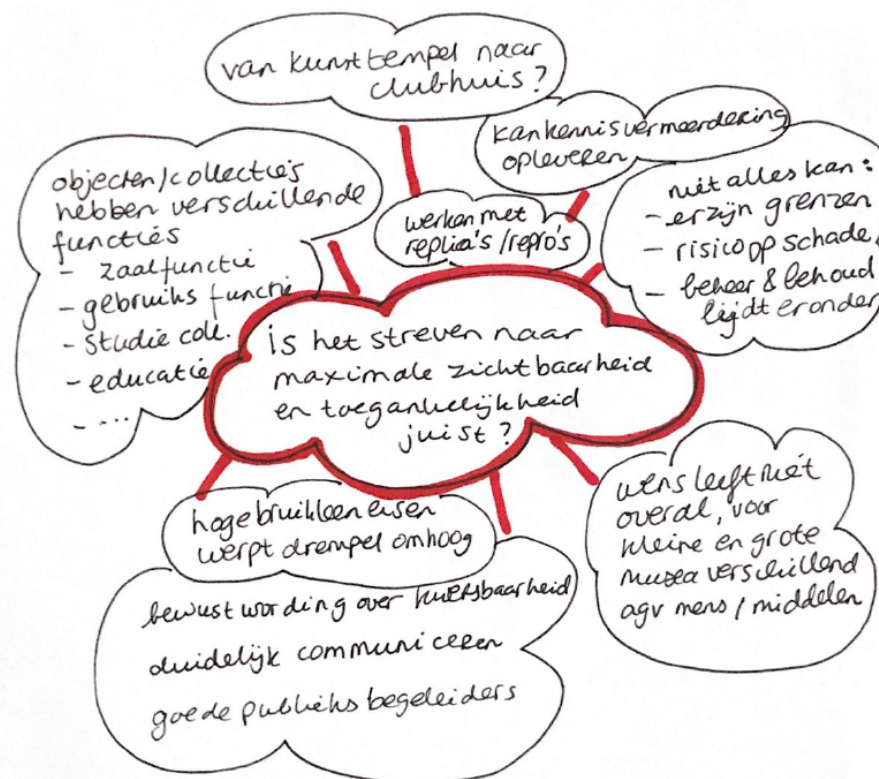 van kunsttempel naar
clubhuis?
kan kennisvermeerdering
opleveren
objecten/collecties
hebben verschillende
functies
- zaalfunctie
- gebruiks functie
- studie coll.
- educatie
- ....
werken met
replica's/repro's
niet alles kan:
- er zijn grenzen
- risico op schade
- beheer & behoud
lijdt eronder
is het streven naar
maximale zichtbaarheid
en toegankelijkheid
juist?
hoge bruikleeneisen
werpt drempel omhoog
wens leeft niet
overal, voor
kleine en grote
musea verschillend
agv mens/middelen
bewustwording over kwetsbaarheid
duidelijk communiceren
goede publieksbegeleiders